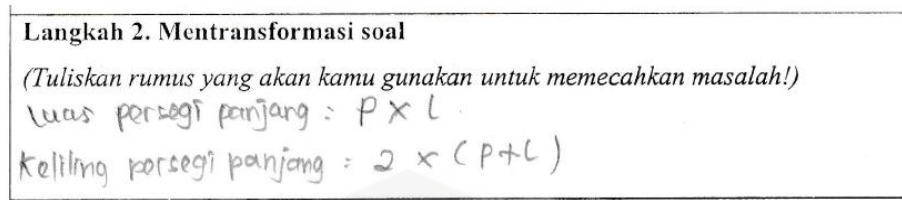 Langkah 2. Mentransformasi soal
(Tuliskan rumus yang akan kamu gunakan untuk memecahkan masalah!)
Luas persegi panjang : P x l
Keliling persegi panjang : 2 x (P+L)